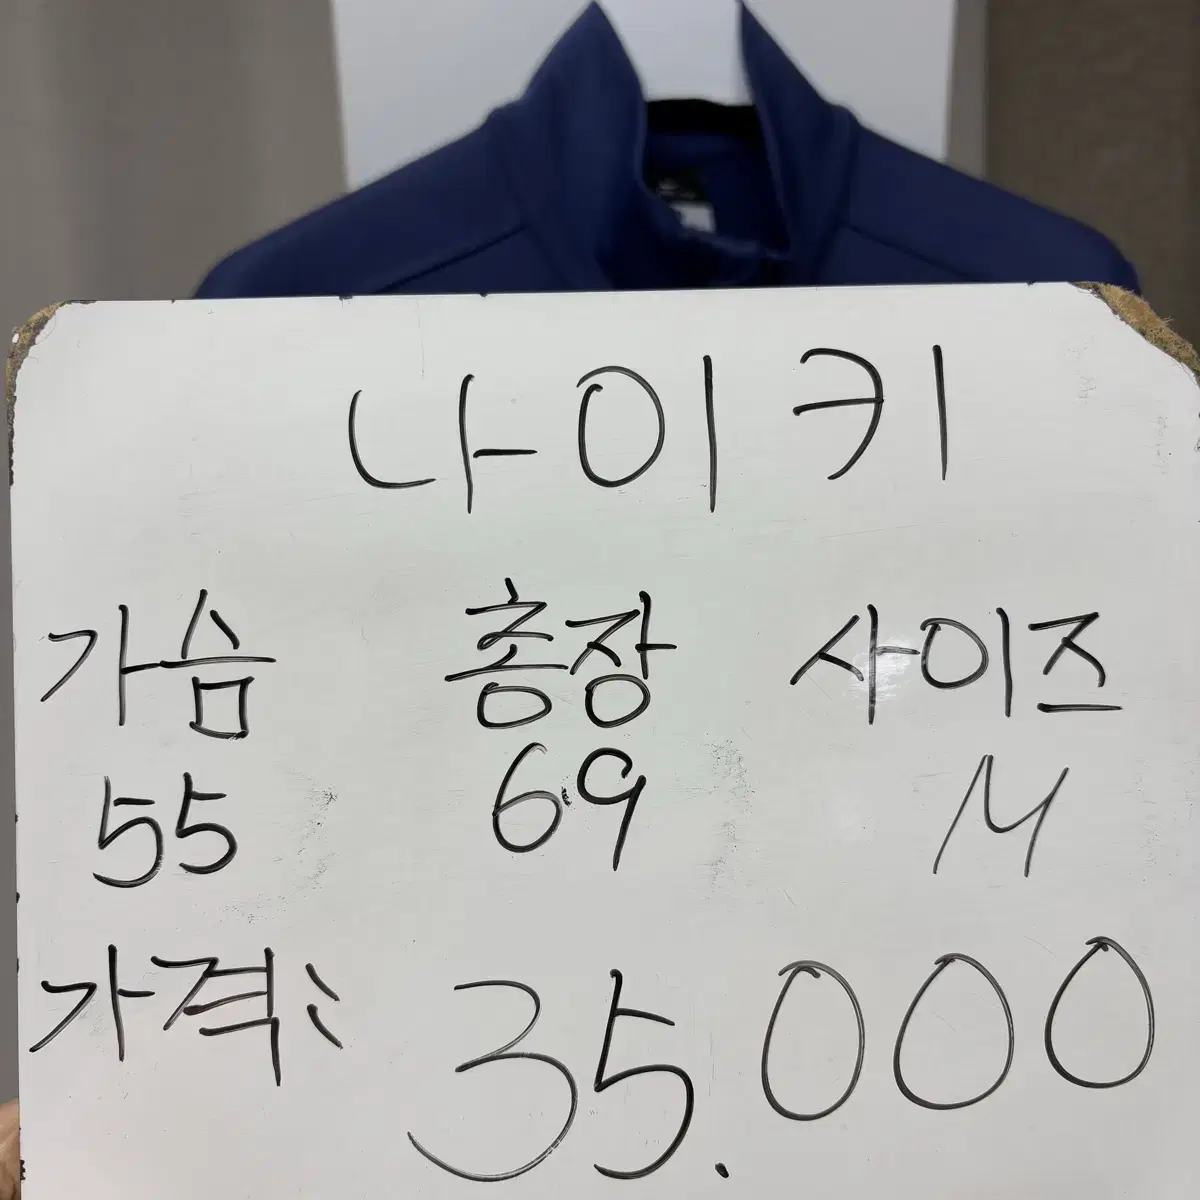 나이키
가슴 총장 사이즈
55 69 M
가격: 35.000